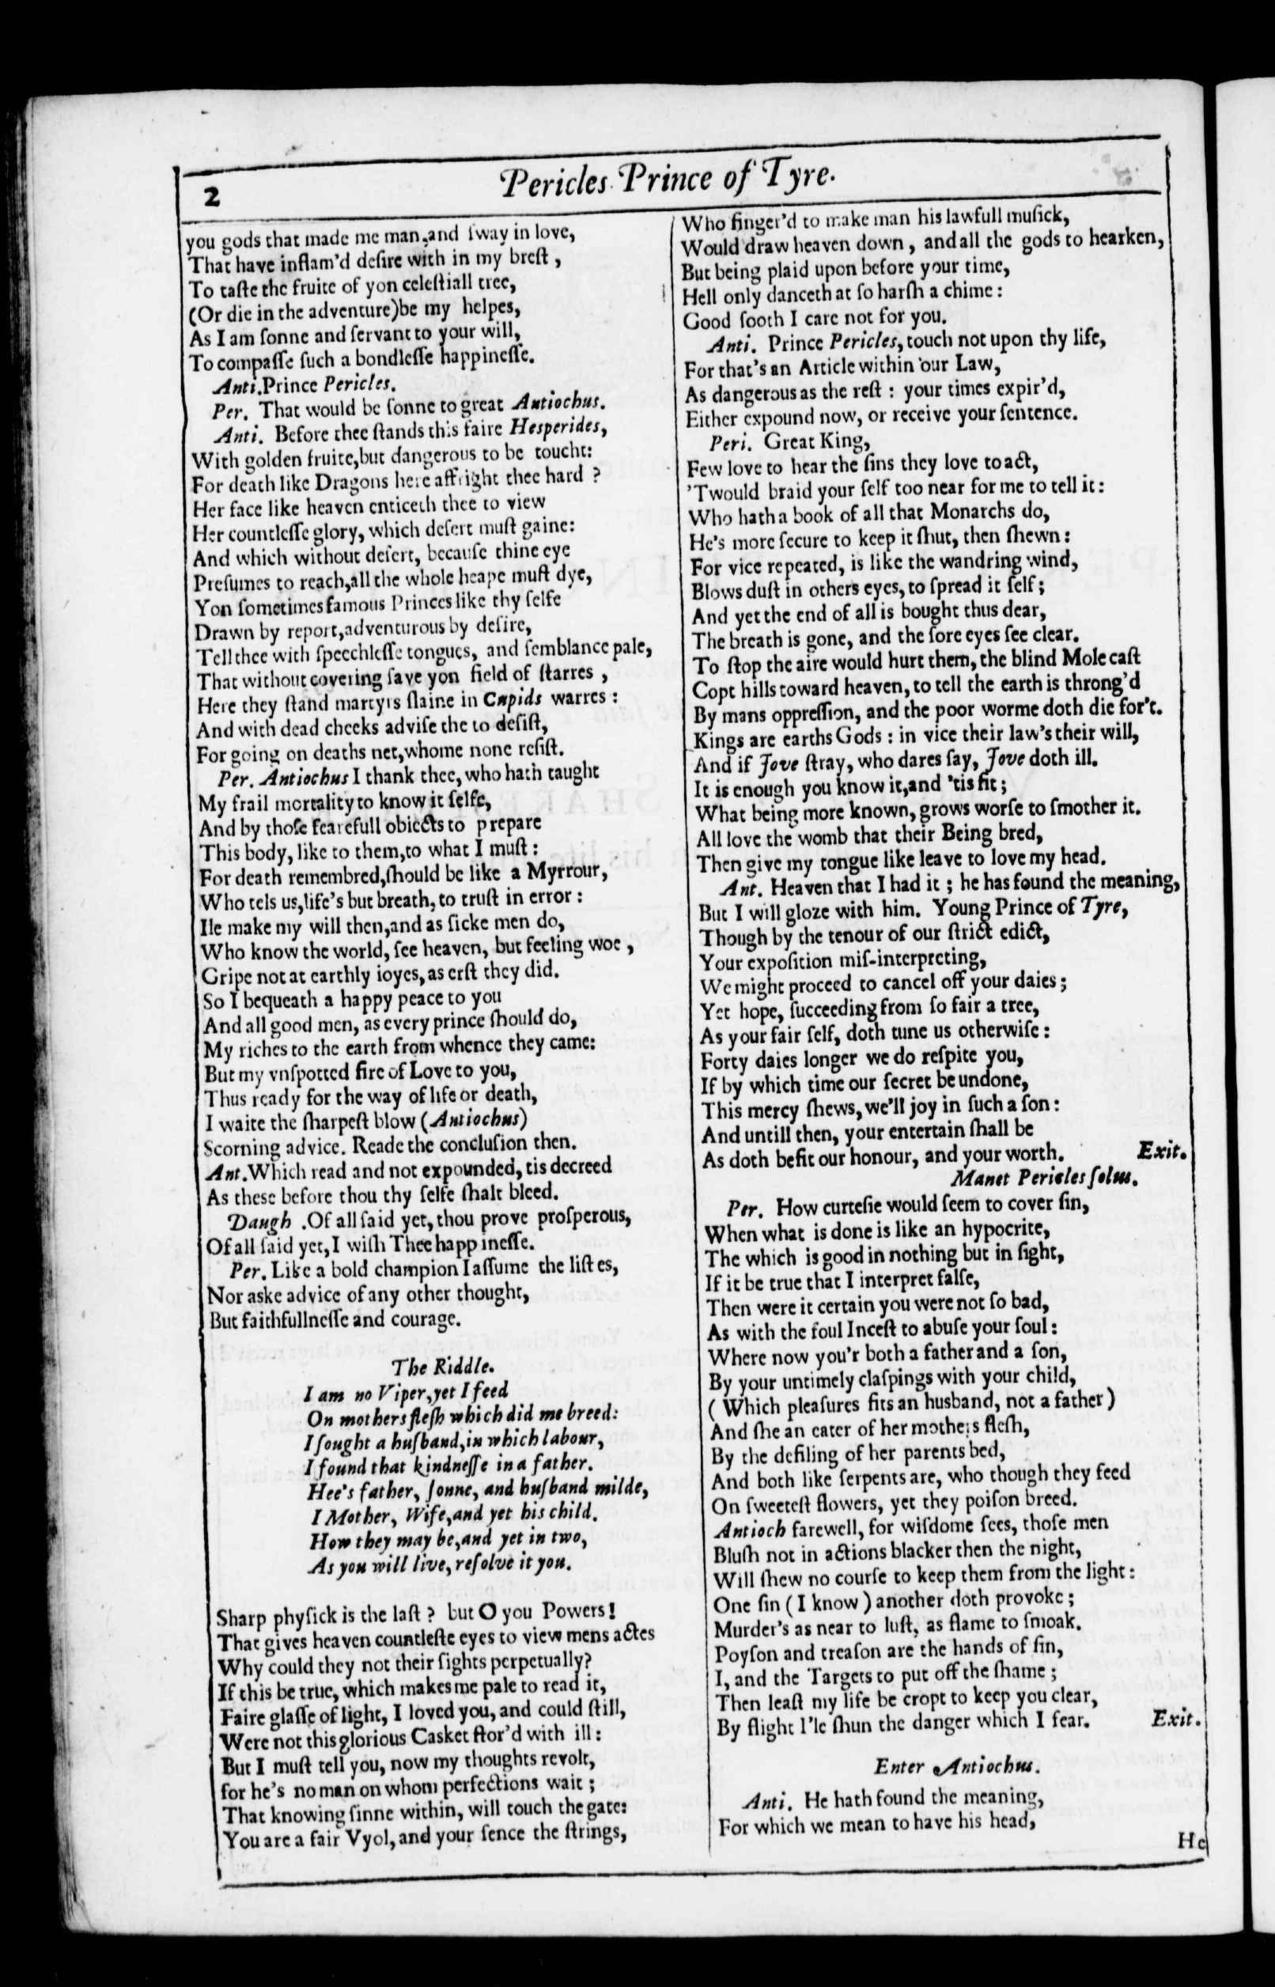 2
Pericles Prince of Tyre.
you gods that made me man,and ſway in love,
That have inflam'd deſire with in my breſt ,
To taſte the fruite of yon celeſtiall tree,
(Or die in the adventure)be my helpes,
As I am ſonne and ſervant to your will,
To compaſſe ſuch a bondleſſe happineſſe.
Anti.Prince Pericles.
Per. That would be ſonne to great Antiochus.
Anti. Before thee ſtands this faire Hesperides,
With golden fruite,but dangerous to be toucht:
For death like Dragons here affright thee hard ?
Her face like heaven enticeth thee to view
Her countleſſe glory, which deſert muſt gaine:
And which without deſert, becauſe thine eye
Preſumes to reach,all the whole heape muſt dye,
Yon ſometimes famous Princes like thy ſelfe
Drawn by report,adventurous by deſire,
Tell thee with ſpeechleſſe tongues, and ſemblance pale,
That without covering ſave yon field of ſtarres ,
Here they ſtand martyrs ſlaine in Cupids warres :
And with dead cheeks adviſe the to deſiſt,
For going on deaths net,whome none reſiſt.
Per. Antiochus I thank thee, who hath taught
My frail mortality to know it ſelfe,
And by thoſe fearefull obiects to prepare
This body, like to them,to what I muſt :
For death remembred,ſhould be like a Myrrour,
Who tels us,life's but breath, to truſt in error :
Ile make my will then,and as ſicke men do,
Who know the world, ſee heaven, but feeling woe ,
Gripe not at earthly ioyes, as erſt they did.
So I bequeath a happy peace to you
And all good men, as every prince ſhould do,
My riches to the earth from whence they came:
But my vnſpotted fire of Love to you,
Thus ready for the way of life or death,
I waite the ſharpeſt blow (Antiochus)
Scorning advice. Reade the concluſion then.
Ant.Which read and not expounded, tis decreed
As these before thou thy ſelfe ſhalt bleed.
Daugh .Of all ſaid yet, thou prove proſperous,
Of all ſaid yet,I wiſh Thee happineſſe.
Per. Like a bold champion I aſſume the liſtes,
Nor aske advice of any other thought,
But faithfullneſſe and courage.
The Riddle.
I am no Viper,yet I feed
On mothers fleſh which did me breed:
I ſought a huſband,in which labour,
I found that kindneſſe in a father.
Hee's father, ſonne, and huſband milde,
I Mother, Wife,and yet his child.
How they may be,and yet in two,
As you will live, reſolve it you.
Sharp phyſick is the laſt ? but O you Powers!
That gives heaven countleſte eyes to view mens actes
Why could they not their ſights perpetually?
If this be true, which makes me pale to read it,
Faire glaſſe of light, I loved you, and could ſtill,
Were not this glorious Casket ſtor'd with ill :
But I muſt tell you, now my thoughts revolt,
for he's no man on whom perfections wait ;
That knowing ſinne within, will touch the gate:
You are a fair Vyol, and your ſence the ſtrings,
Who finger'd to make man his lawfull muſick,
Would draw heaven down , and all the gods to hearken,
But being plaid upon before your time,
Hell only danceth at ſo harſh a chime :
Good ſooth I care not for you.
Anti. Prince Pericles, touch not upon thy life,
For that's an Article within our Law,
As dangerous as the reſt : your times expir'd,
Either expound now, or receive your ſentence.
Peri. Great King,
Few love to hear the ſins they love to act,
'Twould braid your ſelf too near for me to tell it :
Who hath a book of all that Monarchs do,
He's more ſecure to keep it ſhut, then ſhewn :
For vice repeated, is like the wandring wind,
Blows duſt in others eyes, to ſpread it ſelf ;
And yet the end of all is bought thus dear,
The breath is gone, and the ſore eyes ſee clear.
To ſtop the aire would hurt them, the blind Mole caſt
Copt hills toward heaven, to tell the earth is throng'd
By mans oppreſſion, and the poor worme doth die for't.
Kings are earths Gods : in vice their law's their will,
And if Jove ſtray, who dares ſay, Jove doth ill.
It is enough you know it,and 'tis fit ;
What being more known, grows worſe to ſmother it.
All love the womb that their Being bred,
Then give my tongue like leave to love my head.
Ant. Heaven that I had it ; he has found the meaning,
But I will gloze with him. Young Prince of Tyre,
Though by the tenour of our ſtrict edict,
Your expoſition miſ-interpreting,
We might proceed to cancel off your daies ;
Yet hope, ſucceeding from ſo fair a tree,
As your fair ſelf, doth tune us otherwiſe :
Forty daies longer we do reſpite you,
If by which time our ſecret be undone,
This mercy ſhews, we'll joy in ſuch a ſon :
And untill then, your entertain ſhall be
As doth befit our honour, and your worth. Exit.
Manet Pericles ſolus.
Per. How curteſie would ſeem to cover ſin,
When what is done is like an hypocrite,
The which is good in nothing but in ſight,
If it be true that I interpret falſe,
Then were it certain you were not ſo bad,
As with the foul Inceſt to abuſe your ſoul :
Where now you'r both a father and a ſon,
By your untimely claſpings with your child,
( Which pleaſures fits an husband, not a father )
And ſhe an eater of her mothers fleſh,
By the defiling of her parents bed,
And both like ſerpents are, who though they feed
On ſweeteſt flowers, yet they poiſon breed.
Antioch farewell, for wiſdome ſees, thoſe men
Bluſh not in actions blacker then the night,
Will ſhew no courſe to keep them from the light :
One ſin ( I know ) another doth provoke ;
Murder's as near to luſt, as flame to ſmoak.
Poyſon and treaſon are the hands of ſin,
I, and the Targets to put off the ſhame ;
Then leaſt my life be cropt to keep you clear,
By flight I'le ſhun the danger which I fear. Exit.
Enter Antiochus.
Anti. He hath found the meaning,
For which we mean to have his head,
He